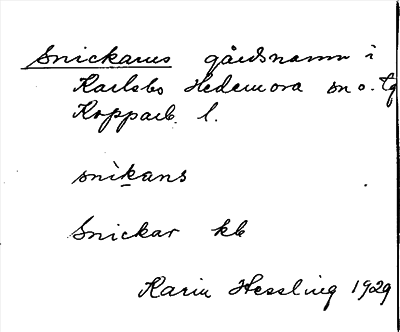 Snickarns gårdsnamn i
Karlsbo Hedemora sn o. tg
Kopparb. l.
snikans
Snickar kb
Karin Hessling 1929